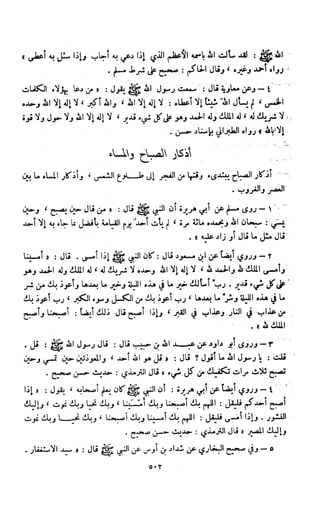 الله ﷺ : لقد سألت الله باسمه الأعظم الذي إذا دعي به أجاب وإذا سئل به أعطى »
رواه أحمد وغيره ، وقال الحاكم : صحيح على شرط مسلم .
٤ – وعن معاوية قال : سمعت رسول الله ﷺ يقول : « من دعا بهؤلاء الكلمات
الخمس ، لم يسأل الله شيئاً إلا أعطاه : لا إله إلا الله ، والله أكبر ، لا إله إلا الله وحده
لا شريك له ، له الملك وله الحمد وهو على كل شيء قدير ، لا إله إلا الله ولا حول ولا قوة
إلا بالله » رواه الطبراني بإسناد حسن .
أذكار الصباح والمساء
أذكار الصباح يبتدىء وقتها من الفجر إلى طلوع الشمس ، وأذكار المساء ما بين
العصر والغروب .
١ – روى مسلم عن أبي هريرة أن النبي ﷺ قال : « من قال حين يصبح ، وحين
يمسي : سبحان الله وبحمده مائة مرة ، لم يأت أحد يوم القيامة بأفضل مما جاء به إلا أحد
قال مثل ما قال أو زاد عليه » .
٢ – وروي أيضاً عن ابن مسعود قال : كان النبي ﷺ إذا أمسى . قال : « أمسينا
وأمسى الملك لله والحمد لله ، لا إله إلا الله وحده لا شريك له ، له الملك وله الحمد وهو
على كل شيء قدير . رب أسألك خير ما في هذه الليلة وخير ما بعدها وأعوذ بك من شر
ما في هذه الليلة وشر ما بعدها ، رب أعوذ بك من الكسل وسوء الكبر ، رب أعوذ بك
من عذاب في النار وعذاب في القبر ، وإذا أصبح قال ذلك أيضاً : أصبحنا وأصبح
الملك لله » .
٣ – وروى أبو داود عن عبد الله بن حبيب قال : قال رسول الله ﷺ : قل .
قلت : يا رسول الله ما أقول ؟ قال : « قل هو الله أحد ، والمعوذتين حين تمسي وحين
تصبح ثلاث مرات تكفيك من كل شيء » قال الترمذي : حديث حسن صحيح .
٤ – وروي أيضاً عن أبي هريرة : أن النبي ﷺ كان يعلم أصحابه ، يقول : « إذا
أصبح أحدكم فليقل : اللهم بك أصبحنا وبك أمسينا ، وبك نحيا وبك نموت ، وإليك
النشور . وإذا أمسى فليقل : اللهم بك أمسينا وبك أصبحنا ، وبك نحيا وبك نموت
وإليك المصير » قال الترمذي : حديث حسن صحيح .
٥ – وفي صحيح البخاري عن شداد بن أوس عن النبي ﷺ قال : « سيد الاستغفار .
٥٠٢